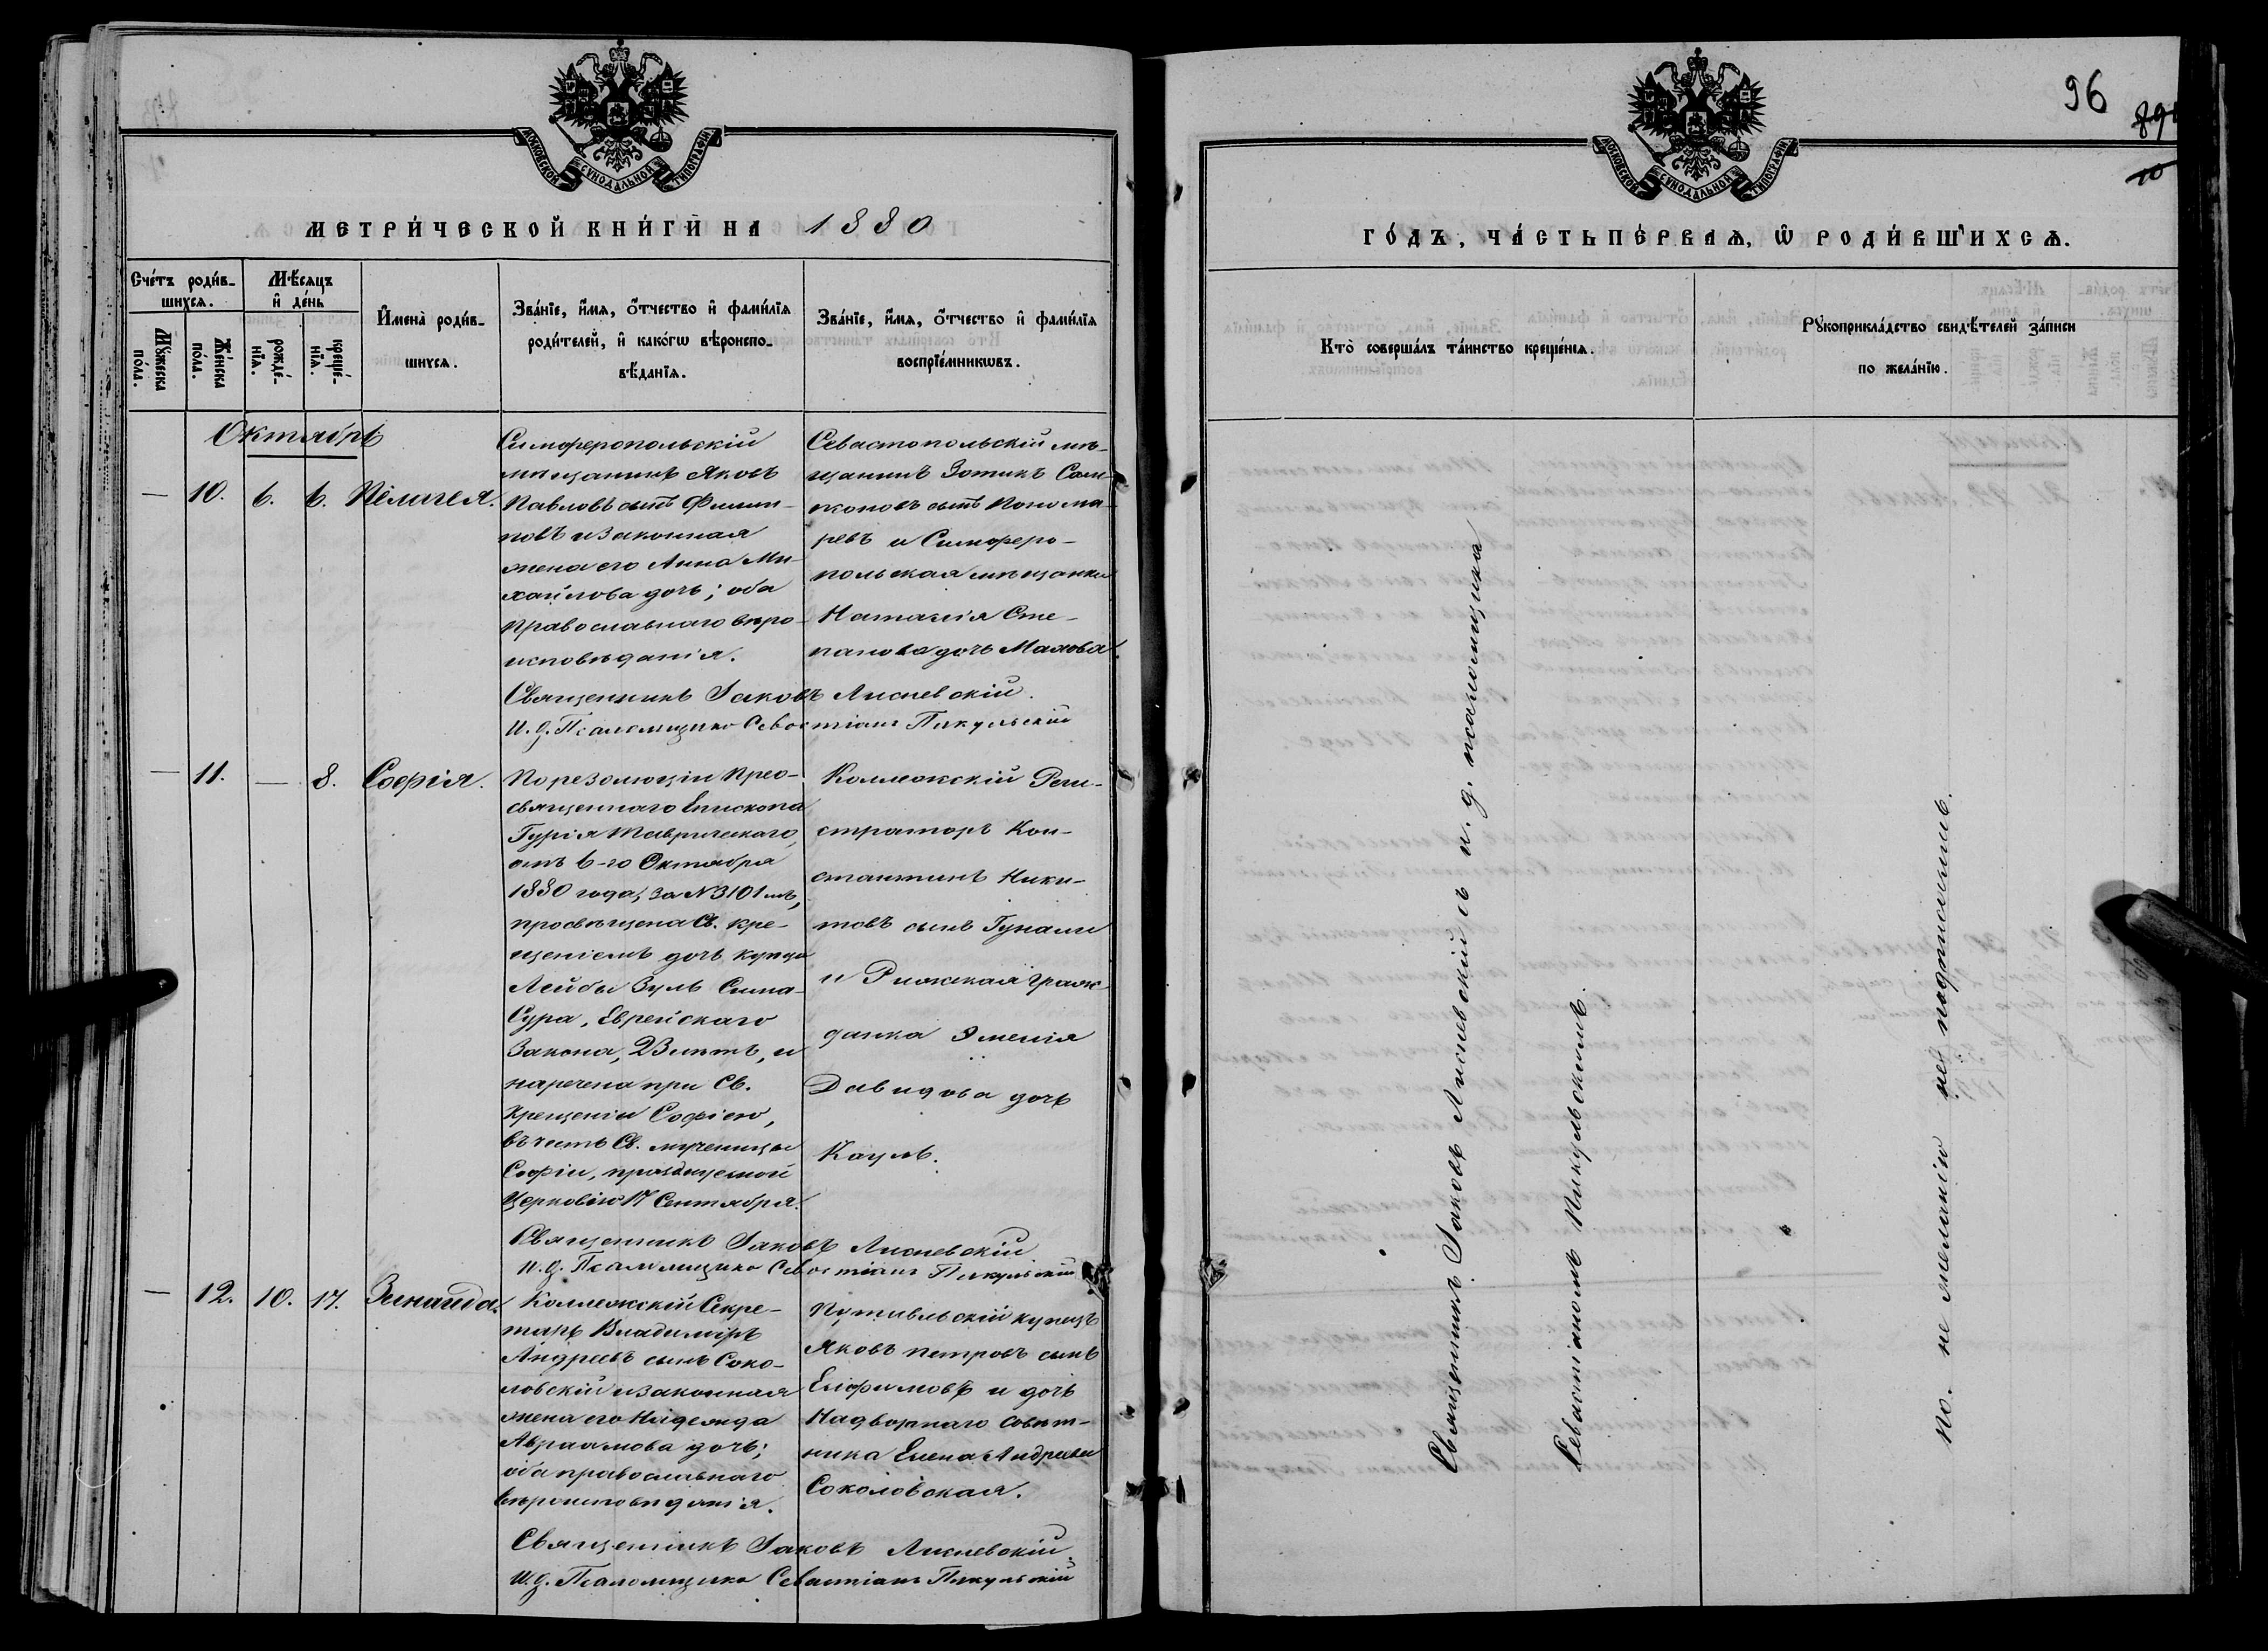 МОСКОВСКОЙ СѴНОДАЛЬНОЙ ТИПОГРАФІИ
МЕТРИ́ЧЕСКОЙ КНИ́ГИ НА 1880
Сче́тъ роди́в-
шихсѧ.
Мꙋ́жеска по́ла.
Же́нска по́ла.
Мѣ́сѧцъ
и҆ де́нь
рожде́-
нїѧ.
креще́-
нїѧ.
И҆мена̀ роди́в-
шихсѧ.
Зва́нїе, и҆́мѧ, о҆́тчество и҆ фами́лїѧ
роди́телей, и҆ како́гѡ вѣроиспо-
вѣ́данїѧ.
Зва́нїе, и҆́мѧ, о҆́тчество и҆ фами́лїѧ
воспрїе́мникѡвъ.
Октябрь
— 10. 6. 6. Пелагея.
Симферопольскій
мѣщанинъ Яковъ
Павловъ сынъ Филип-
повъ и законная
жена его Анна Ми-
хайлова дочь; оба
Православнаго вѣро-
исповѣданія.
Севастопольскій мѣ-
щанинъ Зотикъ
сынъ Понома-
ревъ и Симферо-
польская мѣщанка
Наталія Сте-
панова дочь
Священникъ Іаковъ Лисневскій.
И. д. Псаломщика Севастіанъ Пикульскій
— 11. — 8. Софія.
По резолюціи Прео-
священнаго Епископа
Гурія Таврическаго,
отъ 6-го Октября
1880 года, за N 3101мъ,
просвѣщена Св. кре-
щеніемъ дочь купца
Лейбы
Сура, Еврейскаго
Закона, лѣтъ, и
наречена при Св.
Крещеніи Софіею,
въ честь Св. мученицы
Софіи, празднуемой
Церковію 17 Сентября.
Коллежскій Реги-
страторъ Кон-
стантинъ Ники-
товъ сынъ Гунали
и Рижская граж-
данка Эмелія
Давидова дочь
Кауль.
Священникъ Іаковъ Лисневскій
И. д. Псаломщика Севастіанъ Пикульскій
— 12. 10. 17. Зинаида.
Коллежскій Секре-
тарь Владиміръ
Андреевъ сынъ Соко-
ловскій и законная
жена его Надежда
Авраамова дочь;
оба православнаго
вѣроисповѣданія.
Путивльскій купецъ
Яковъ Петровъ сынъ
Ефимовъ и дочь
Надворнаго Совѣт-
ника Елена Андреева
Соколовская.
Священникъ Іаковъ Лисневскій.
И. д. Псаломщика Севастіанъ Пикульскій
96
МОСКОВСКОЙ СѴНОДАЛЬНОЙ ТИПОГРАФІИ
ГО́ДЪ, ЧА́СТЬ ПЕ́РВАѦ, Ѡ҆ РОДИ́ВШИХСѦ.
Кто̀ соверша́лъ та́инство креще́нїѧ.
Рꙋкоприкла́дство свидѣ́телей за́писи
по жела́нїю.
Священникъ Іаковъ Лисневскій съ и. д. псаломщика
Севастіаномъ Пикульскимъ.
По не желанію не подписались.